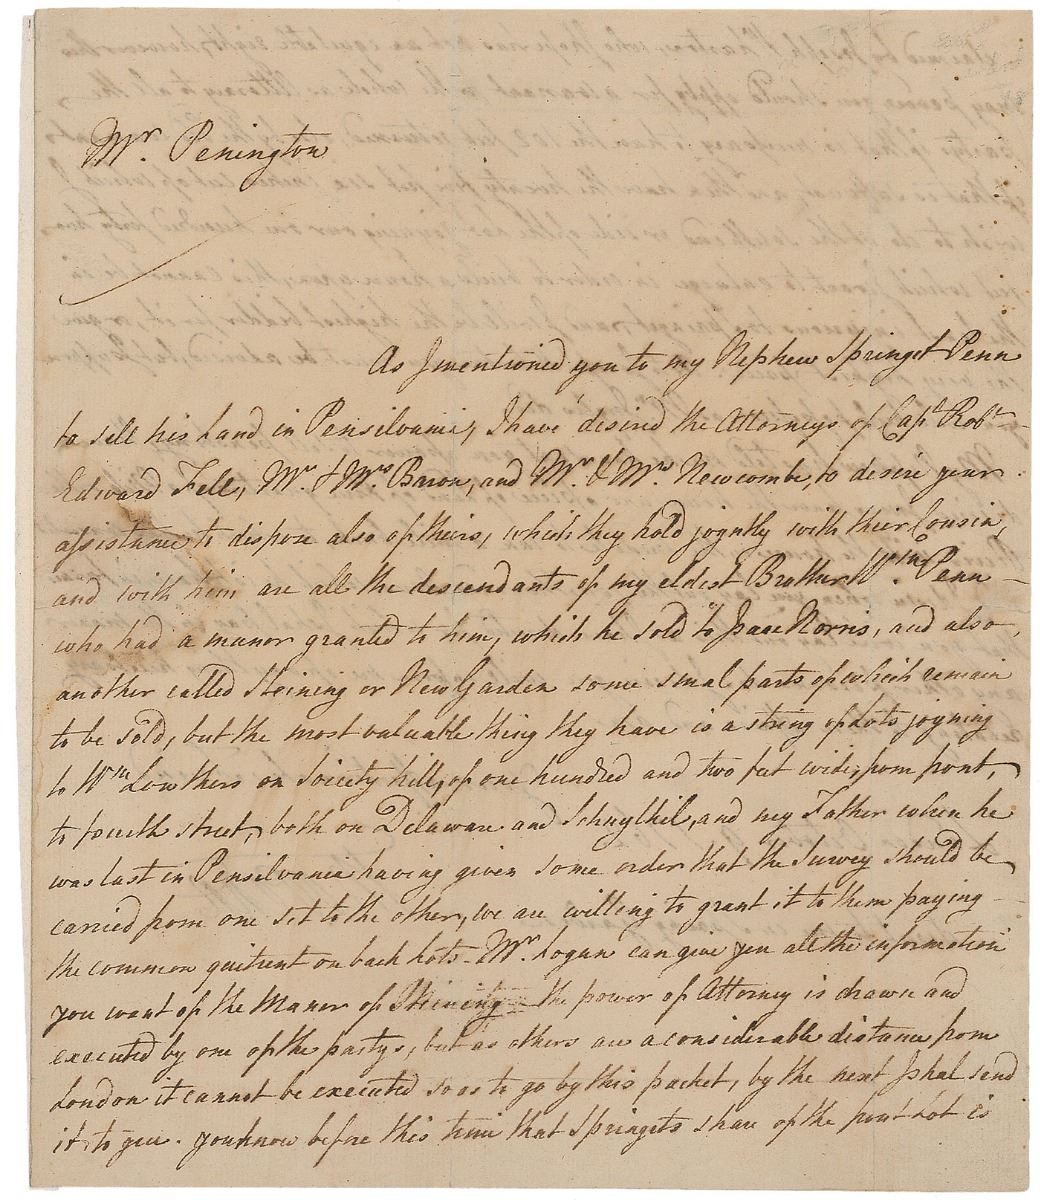 Mr. Penington
As I mentioned you to my Nephew Springet Penn
to sell his Land in Pensilvania, I have desired the Attorneys of Capt Robt
Edward Fell, Mr. & Mrs. Baron, and Mr. & Mrs. Newcombe, to desire your
assistance to dispose also of theirs, which they hold joyntly with their Cousin,
and with him are all the descendants of my eldest Brother Wm. Penn
who had a manor granted to him, which he sold to Isaac Norris, and also
another called Steining or New Garden some smal parts of which remain
to be sold, but the most valuable thing they have is a string of Lots joyning
to Wm Lowthers on Society hill, of one hundred and two feet wide, from front,
to fourth street, both on Delaware and Schuylkil, and my Father when he
was last in Pensilvania having given some order that the Survey should be
carried from one set to the other, we are willing to grant it to them paying
the common quitrent on back Lots - Mr. Logan can give you all the information
you want of the Manor of Steining the power of Attorney is drawn and
executed by one of the partys, but as others are a considerable distance from
London it cannot be executed so as to go by this packet, by the next I shal send
it to you. you know before this time that Springets share of the front Lot is